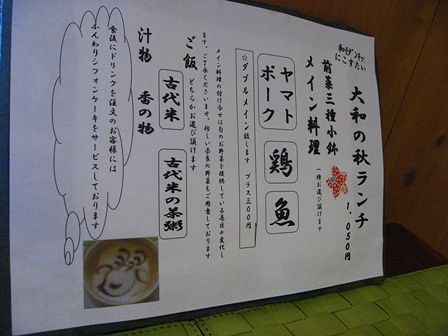 和モダンキッチン
にこすたい
大和の秋ランチ
1,050円
前菜三種小鉢
メイン料理
一種お選び頂けます
ヤマト
ポーク
鶏
魚
☆ダブルメイン致します プラス三〇〇円
メイン料理の付け合せは旬のお野菜を提供している為日々変化し
ます。ご了承くださいませ。珍しい奈良の野菜もご用意しております
ご飯
どちらかお選び頂けます
古代米
古代米の茶粥
汁物 香の物
食後にドリンクを注文のお客様には
ふんわりシフォンケーキをサービスしております